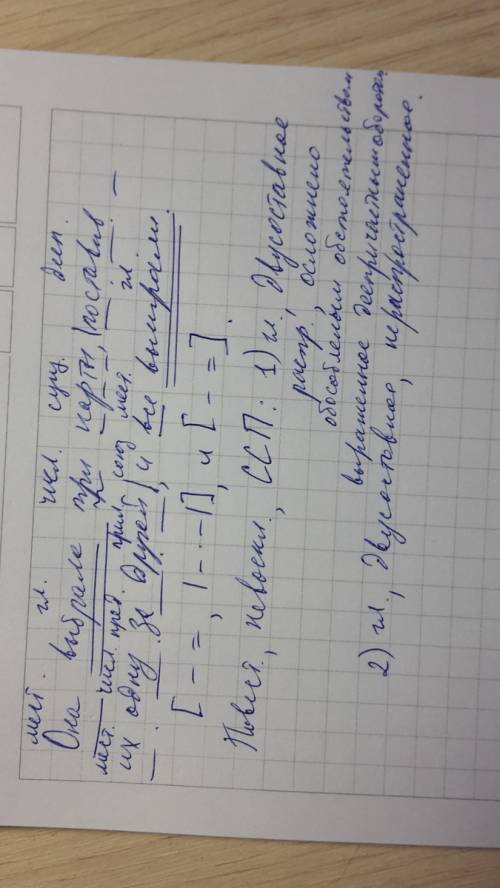 мест. гл. числ. сущ. деп.
Она выбрала три карты, |поставив
мест. числ. пред. прил. союз мест. гл.
их одну за другой|, и все выиграли.
[– =, |–·–·|], и [– =].
Повест., невоскл., ССП: 1) гл. двусоставное
распр., осложнено
обособленным обстоятельством
выраженное деепричастным оборотом
2) гл., двусоставное, нераспространенное.